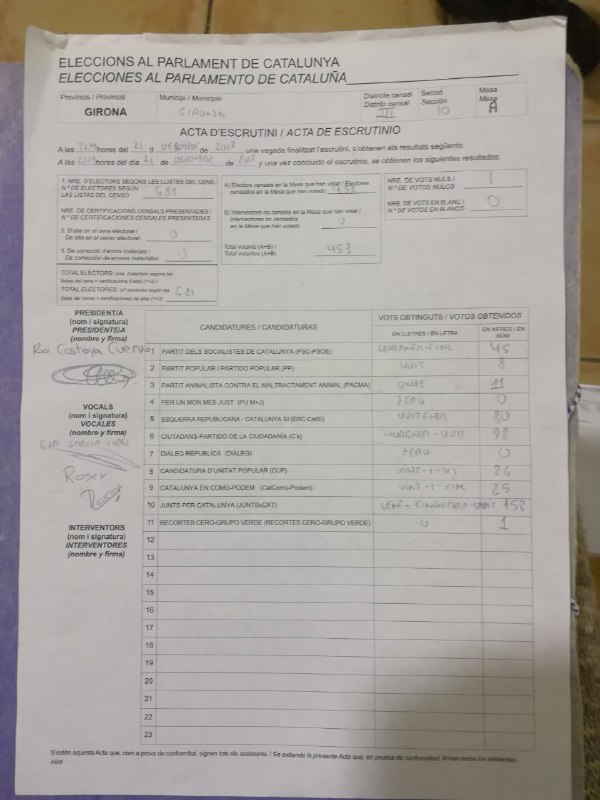 ELECCIONS AL PARLAMENT DE CATALUNYA
ELECCIONES AL PARLAMENTO DE CATALUÑA
Província / Provincia
GIRONA
Municipi / Municipio
GIRONA
Districte censal
Distrito censal
III
Secció
Sección
10
Mesa
Mesa
A
ACTA D'ESCRUTINI / ACTA DE ESCRUTINIO
A les hores del 21 d de 2017, una vegada finalitzat l'escrutini, s'obtenen els resultats següents:
A las horas del día 21 de de 2017 y una vez concluido el escrutinio, se obtienen los siguientes resultados:
1. NRE. D'ELECTORS SEGONS LES LLISTES DEL CENS /
N.º DE ELECTORES SEGÚN
LAS LISTAS DEL CENSO
NRE. DE CERTIFICACIONS CENSALS PRESENTADES /
N.º DE CERTIFICACIONES CENSALES PRESENTADAS
2. D'alta en el cens electoral /
De alta en el censo electoral: 0
3. De correcció d'errors materials /
De corrección de errores materiales: 0
TOTAL ELECTORS: (nre. d'electors segons les
llistes del cens + certificacions d'alta) (1+2) /
TOTAL ELECTORES: (nº electores según las
listas del censo + certificaciones de alta) (1+2)
A) Electors censats en la Mesa que han votat / Electores
censados en la Mesa que han votado 453
B) Interventors no censats en la Mesa que han votat /
Interventores no censados
en la Mesa que han votado 0
Total votants (A+B) /
Total votantes (A+B) 453
NRE. DE VOTS NULS /
N.º DE VOTOS NULOS 1
NRE. DE VOTS EN BLANC /
N.º DE VOTOS EN BLANCO 0
PRESIDENT/A
(nom i signatura)
PRESIDENTE/A
(nombre y firma)
VOCALS
(nom i signatura)
VOCALES
(nombre y firma)
Roser
INTERVENTORS
(nom i signatura)
INTERVENTORES
(nombre y firma)
CANDIDATURES / CANDIDATURAS
VOTS OBTINGUTS / VOTOS OBTENIDOS
EN LLETRES / EN LETRA
EN XIFRES / EN NÚM.
1 PARTIT DELS SOCIALISTES DE CATALUNYA (PSC-PSOE) QUARANTA-CINC 45
2 PARTIT POPULAR / PARTIDO POPULAR (PP) VUIT 8
3 PARTIT ANIMALISTA CONTRA EL MALTRACTAMENT ANIMAL (PACMA) ONZE 11
4 PER UN MÓN MÉS JUST (PU M+J) ZERO 0
5 ESQUERRA REPUBLICANA - CATALUNYA SÍ (ERC-CatSí) VUITANTA 80
6 CIUTADANS-PARTIDO DE LA CIUDADANÍA (C's) NORANTA-VUIT 98
7 DIÀLEG REPUBLICÀ (DIÀLEG) ZERO 0
8 CANDIDATURA D'UNITAT POPULAR (CUP) VINT-I-SIS 26
9 CATALUNYA EN COMÚ-PODEM (CatComú-Podem) VINT-I-CINC 25
10 JUNTS PER CATALUNYA (JUNTSxCAT) CENT-CINQUANTA-VUIT 158
11 RECORTES CERO-GRUPO VERDE (RECORTES CERO-GRUPO VERDE) U 1
12
13
14
15
16
17
18
19
20
21
22
23
S'estén aquesta Acta que, com a prova de conformitat, signen tots els assistents. / Se extiende la presente Acta que, en prueba de conformidad, firman todos los asistentes.
AEM